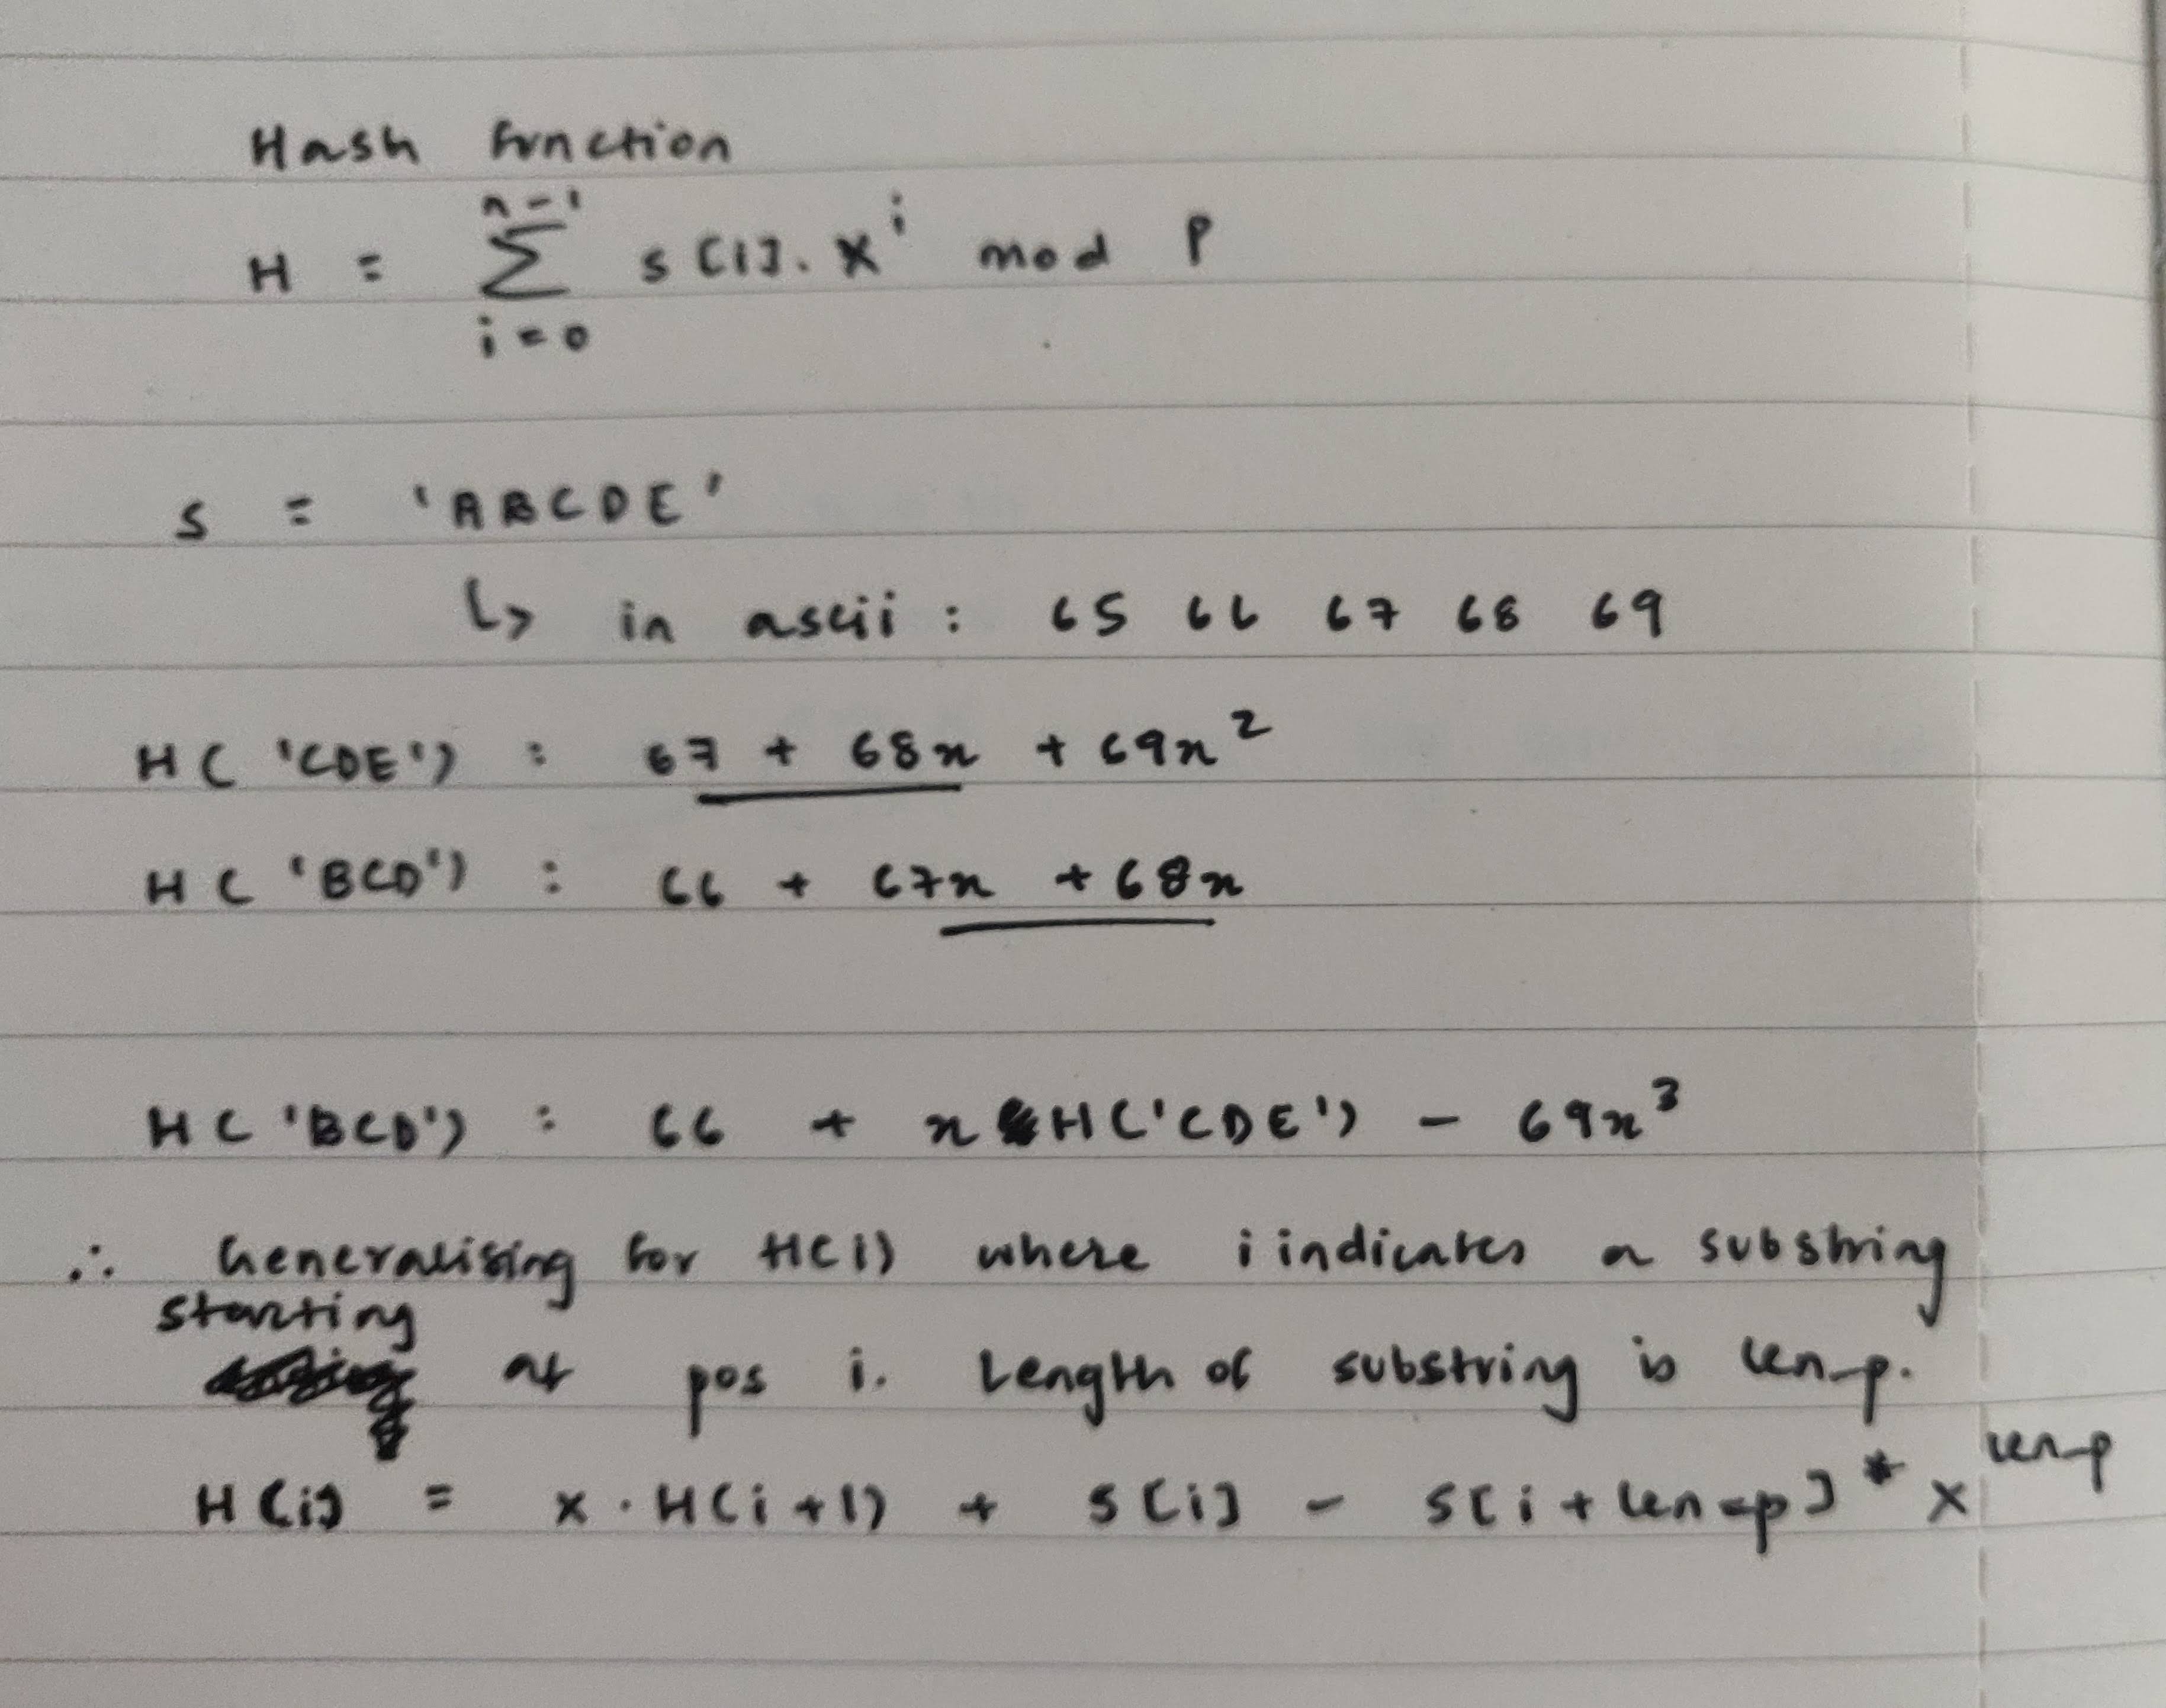 Hash function
n-1
H = Σ s[i]. x^i mod P
i=0
s = 'ABCDE'
↳ in ascii : 65 66 67 68 69
H( 'CDE') : 67 + 68x + 69x²
H( 'BCD') : 66 + 67x + 68x
H( 'BCD') : 66 + x H('CDE') - 69x³
∴ Generalising for H(i) where i indicates a substring
starting
at pos i. Length of substring is len-p.
H(i) = x . H(i+1) + s[i] - s[i + len-p] * x^len-p